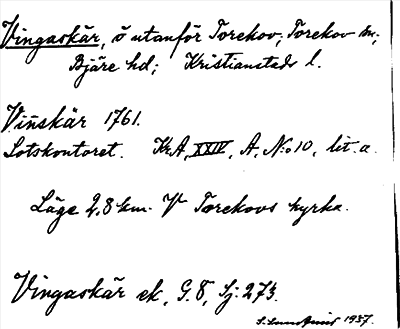 Vingaskär, ö utanför Torekov; Torekov sn;
Bjäre hd; Kristianstads l.
Viñskär 1761.
Lotskontoret. Kr.A, XXIV, A, N:o 10, lit. a.
Läge 2,8 km. V Torekovs kyrka.
Vingaskär ek, G.8, Sj: 273.
S. Lundquist 1937.